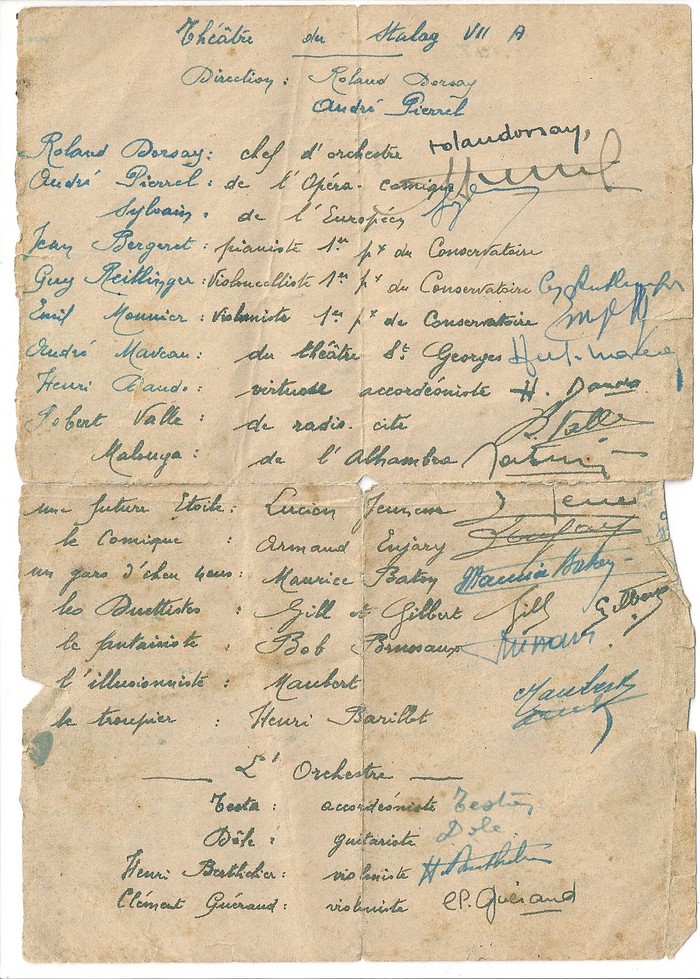 Théâtre du Stalag VII A
Direction : Roland Dorsay
André Pierrel
Roland Dorsay : chef d'orchestre rolandorsay,
André Pierrel : de l'Opéra-comique
Sylvain : de l'Européen
Jean Bergeret : pianiste 1er px du Conservatoire
Guy Reitlinger : Violoncelliste 1er px du Conservatoire
Emil Monnier : Violoniste 1er px de Conservatoire
André Maveau : du théâtre St Georges
Henri Dando : virtuose accordéoniste H. Dando
Robert Valle : de radio-cité R Valle
Malouga : de l'Alhambra
une future Etoile : Lucien Jeunesse
le Comique : Armand Enjary
un gars d'chez nous : Maurice Baton Maurice Baton
les Duettistes : Gill et Gilbert Gill Gilbert
le fantaisiste : Bob Brussaux
l'illusionniste : Maubert Maubert
le troupier : Henri Barillot
L'Orchestre
Testa : accordéoniste
Dôle : guitariste Dole
Henri Berthelier : violoniste H. Berthelier
Clément Guéraud : violoniste Cl. Guéraud